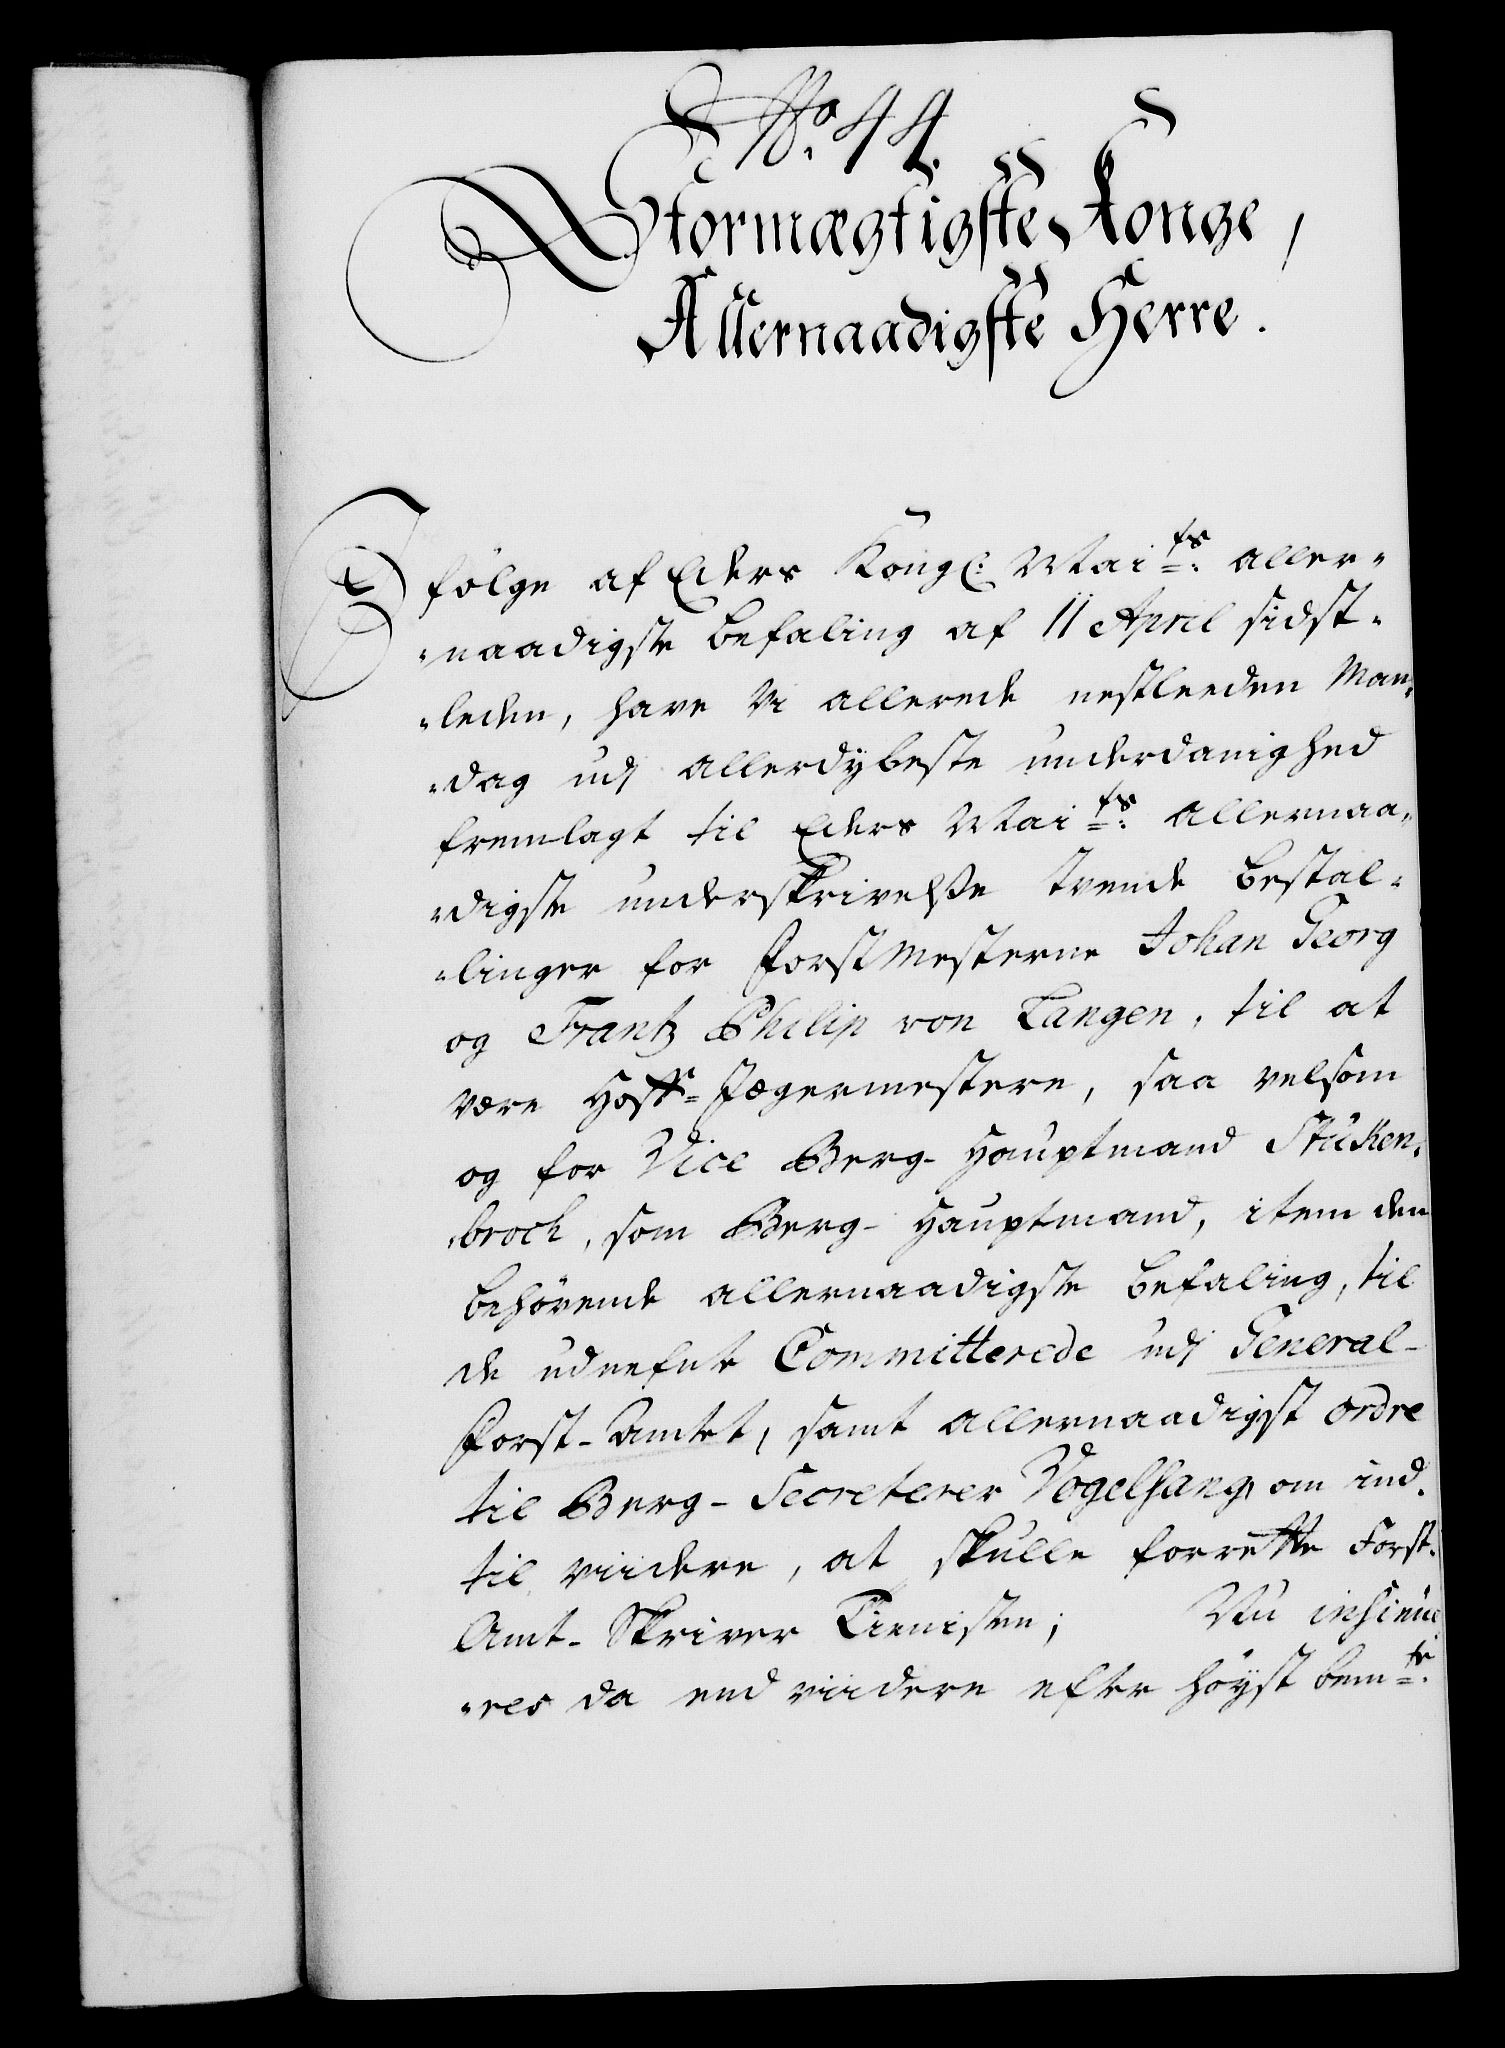 No. 44.
Stormægtigste Konge,
Allernaadigste Herre.
I følge af Eders Kongl: Maits: aller-
-naadigste befaling af 11 April sidst-
-leden, have Vi allerede nestleeden Man-
-dag udj allerdybeste underdanighed
fremlagt til Eders Maits: allernaa-
-digste underskrivelße trende bestal-
-linger for Forstmesterne Johan Georg
og Frantz Philip von Langen, til at
være Hoff-Jægermestere, saa velsom
og for Vice Berg-Hauptmand Stuken-
-brock, som Berg-Hauptmand, item den
behörende allernaadigste befaling, til
de udnefnte Committerede udj General-
Forst-Amtet, samt allernaadigst ordre
til Berg-Secreterer Vogelsang om ind-
til viidere, at skulle forrette Forst-
Amt-Skriver Tienisten; Nu insinue-
-res da end viidere efter høyst bemte: